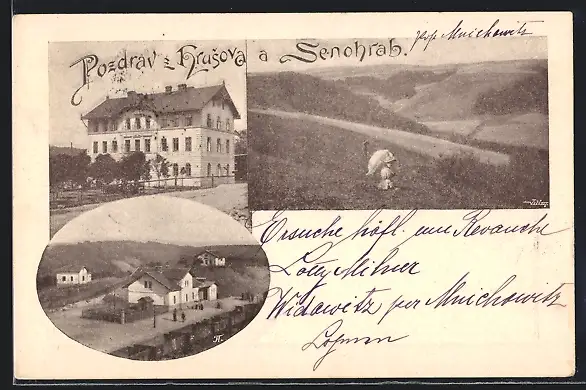 Pozdrav z Hrušova a Senohrab.
per Mnichowitz
Ersuche höfl. um Revanche
Lotty Milner
Widowitz per Mnichowitz